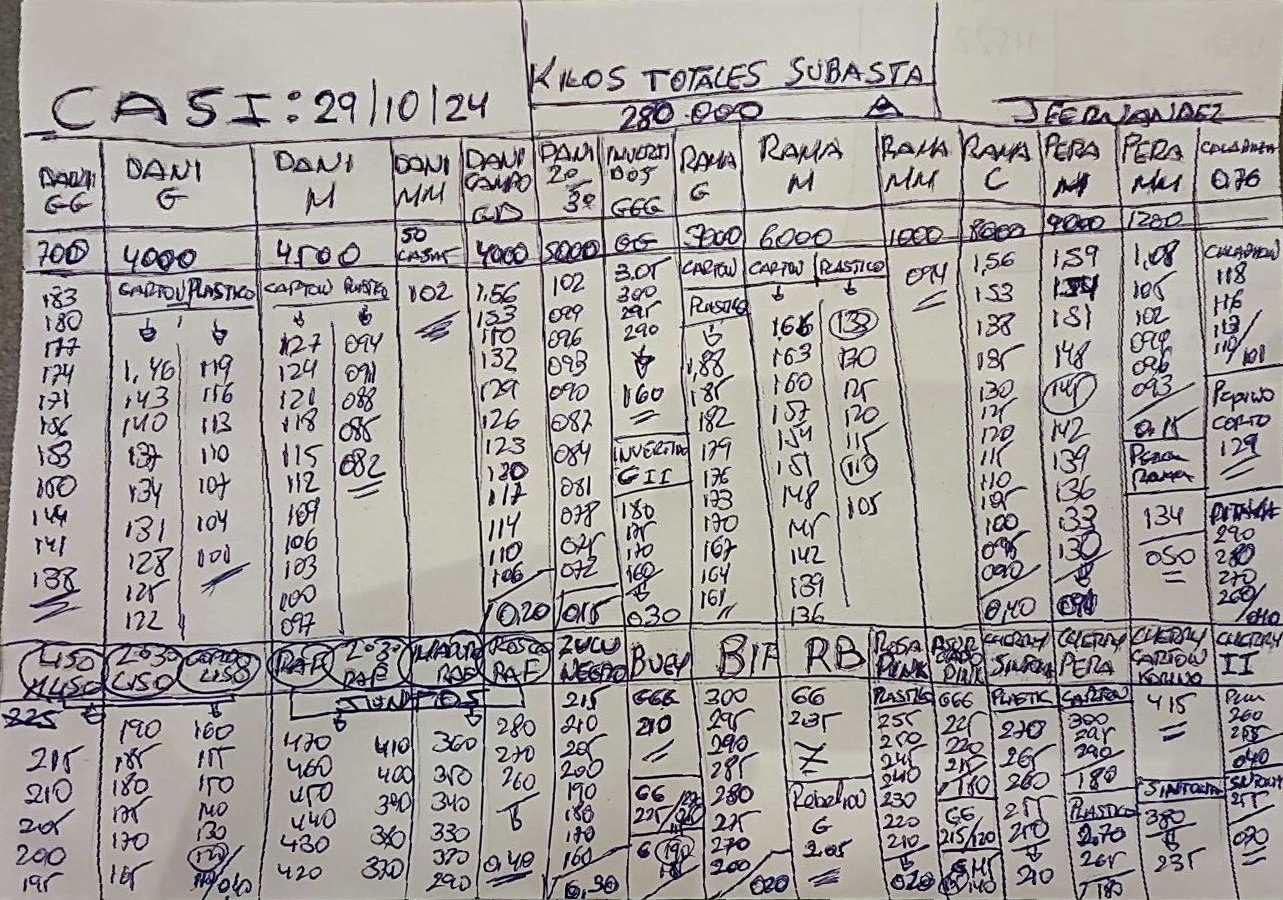 KILOS TOTALES SUBASTA
CASI: 29/10/24
280.000
JFERNANDEZ
DANI GG
DANI G
DANI M
DANI MM
DANI CAMPO
DANI 20 30
INVERTI DOS GGG
RAMA G
RAMA M
RAMA MM
RAMA C
PERA M
PERA MM
CALABAZA 0,76
700 4000 4500 50 4000 5000 GG 5000 6000 1000 8000 9000 1200
183
180
177
174
171
186
153
150
144
141
138
CARTON PLASTICO
1,46 119
143 116
140 113
137 110
134 107
131 104
128 101
125
122
CARTON PLASTICO
127 094
124 091
121 088
118 085
115 082
112
109
106
103
100
097
102
1,56
153
150
132
129
126
123
120
117
114
110
106
0,20
102
099
096
093
090
087
084
081
078
075
072
0,15
3,05
300
295
290
160
INVERTIDO
GII
180
175
170
160
0,30
CARTON
PLASTICO
1,88
185
182
179
176
173
170
167
164
161
CARTON PLASTICO
166 133
163 130
160 125
157 120
154 115
151 110
148 105
145
142
139
136
094
1,56
153
138
135
130
125
120
115
110
105
100
095
090
0,40
159
154
151
148
145
142
139
136
133
130
090
1,08
105
102
099
096
093
0,15
PERA
RAMA
134
050
CALABACIN
118
116
113
110/101
PEPINO
CORTO
129
PITAHAYA
290
280
270
260/
040
450 ALISO
20.30 LISO
CORTO LISO
RAF
20.30 RAF
MARRON RAF
ROSCO RAF
ZULU NEGRO
BUEY
BIF
RB
ROSA PINK
ASURCADO PINK
CHERRY SINTONIA
CHERRY PERA
CHERRY CARTON KOKINO
CHERRY II
225
215
210
205
200
195
190
185
180
175
170
165
160
155
150
140
130
120
110/040
470
460
450
440
430
420
410
400
390
380
370
360
350
340
330
320
290
280
270
260
0,40
215
210
205
200
190
180
170
160
0,30
GGG
210
GG
G 190
300
295
290
285
280
275
270
200
020
GG
235
G
205
PLASTICO
255
250
245
240
230
220
210
020
GGG
225
220
215
180
GG
215/120
PLASTIC
270
265
260
255
250
210
CARTON
300
295
290
180
PLASTICO
2,70
265
180
415
SINTONIA
380
235
260
255
040
SINTONIA
255
020